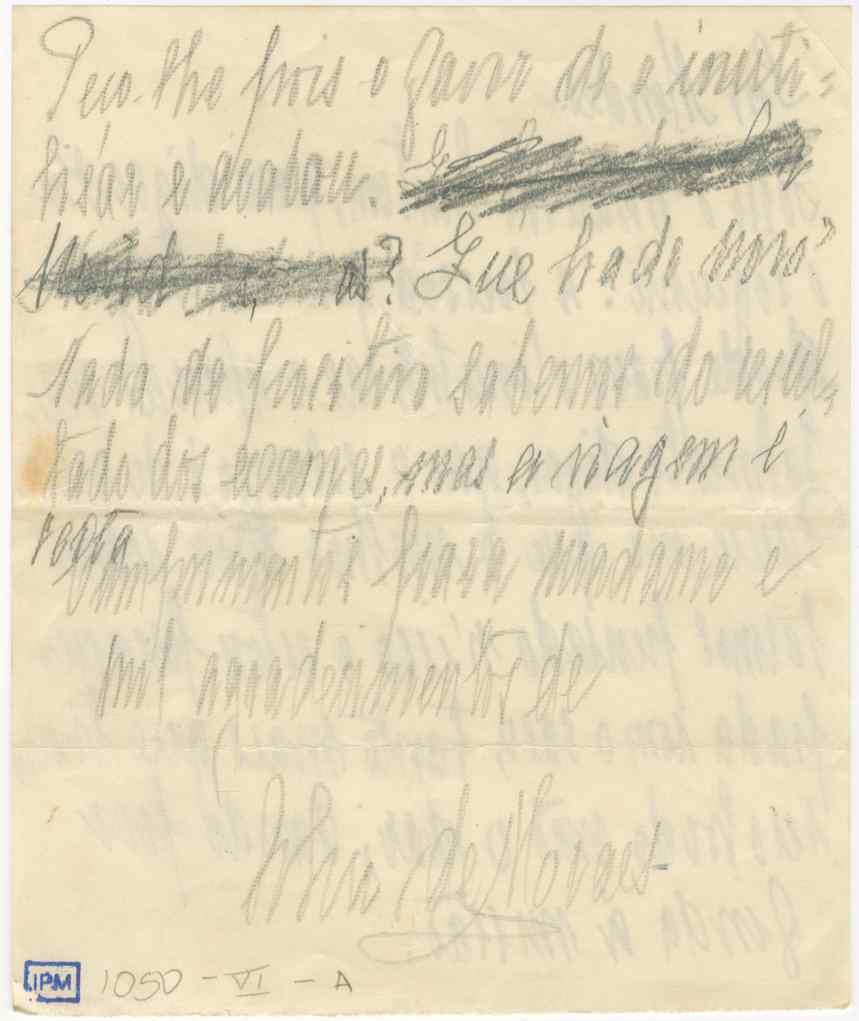 Peço-lhe pois o favor de o inuti-
lisár e acabou.
? Que ha de novo?
Nada de positivo sabemos do resul-
tado dos exames, mas a viagem é
certa
Cumprimentos para madame e
mil agradecimentos de
de Moraes
IPM 1050 - VI - A